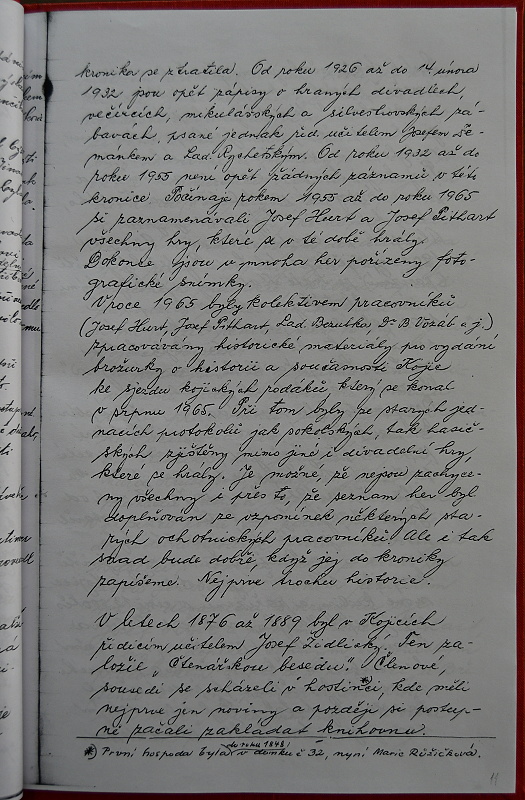 kronika se ztratila. Od roku 1926 až do 14. února
1932 jsou opět zápisy o hraných divadlech,
večírcích, mikulášských a silvestrovských zá-
bavách, psané jednak říd. učitelem Josefem Še-
mánkem a Lad. Rychetským. Od roku 1932 až do
roku 1955 není opět žádných záznamů v této
kronice. Počínaje rokem 1955 až do roku 1965
si zaznamenávali Josef Hurt a Josef Pithart
všechny hry, které se v té době hrály.
Dokonce jsou u mnoha her pořízeny foto-
grafické snímky.
V roce 1965 byly kolektivem pracovníků
(Josef Hurt, Josef Pithart, Lad. Bezubka, Dr B Vozáb a j.)
zpracovávány historické materiály pro vydání
brožurky o historii a současnosti Kojic
ke sjezdu kojických rodáků, který se konal
v srpnu 1965. Při tom byly ze starých jed-
nacích protokolů jak sokolských, tak hasič-
ských zjištěny mimo jiné i divadelní hry,
které se hrály. Je možné, že nejsou zachyce-
ny všechny i přes to, že seznam her byl
doplňován ze vzpomínek některých sta-
rých ochotnických pracovníků. Ale i tak
snad bude dobře, když jej do kroniky
zapíšeme. Nejprve trochu historie.
V letech 1876 až 1889 byl v Kojicích
řídícím učitelem Josef Židlický. Ten za-
ložil „Čtenářskou besedu". Členové,
sousedi se scházeli v hostinci *), kde měli
nejprve jen noviny a později si postup-
ně začali zakládat knihovnu.
*) První hospoda byla do roku 1848 v domku č 32, nyní Marie Růžičková.